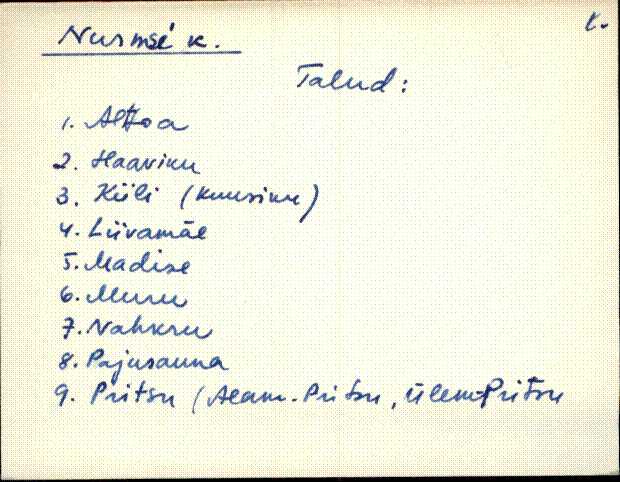 Nurmsé k.
Talud:
1. Alttoa
2. Haaviku
3. Küli (Kuusiku)
4. Liivamäe
5. Madise
6. Muru
7. Nahkru
8. Pajusauna
9. Pritsu (Alam-Pritsu, Ülem-Pritsu